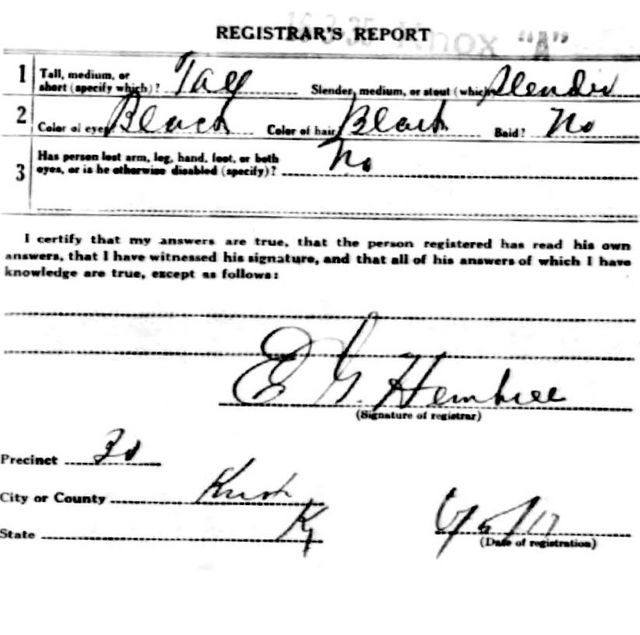 Knox "A"
REGISTRAR'S REPORT
1 Tall, medium, or short (specify which)? Tall Slender, medium, or stout (which)? Slender
2 Color of eyes Black Color of hair Black Bald? No
3 Has person lost arm, leg, hand, foot, or both
eyes, or is he otherwise disabled (specify)? No
I certify that my answers are true, that the person registered has read his own
answers, that I have witnessed his signature, and that all of his answers of which I have
knowledge are true, except as follows:
E G. Hembree
(Signature of registrar)
Precinct
City or County Knox
State Ky 6/5/17
(Date of registration)